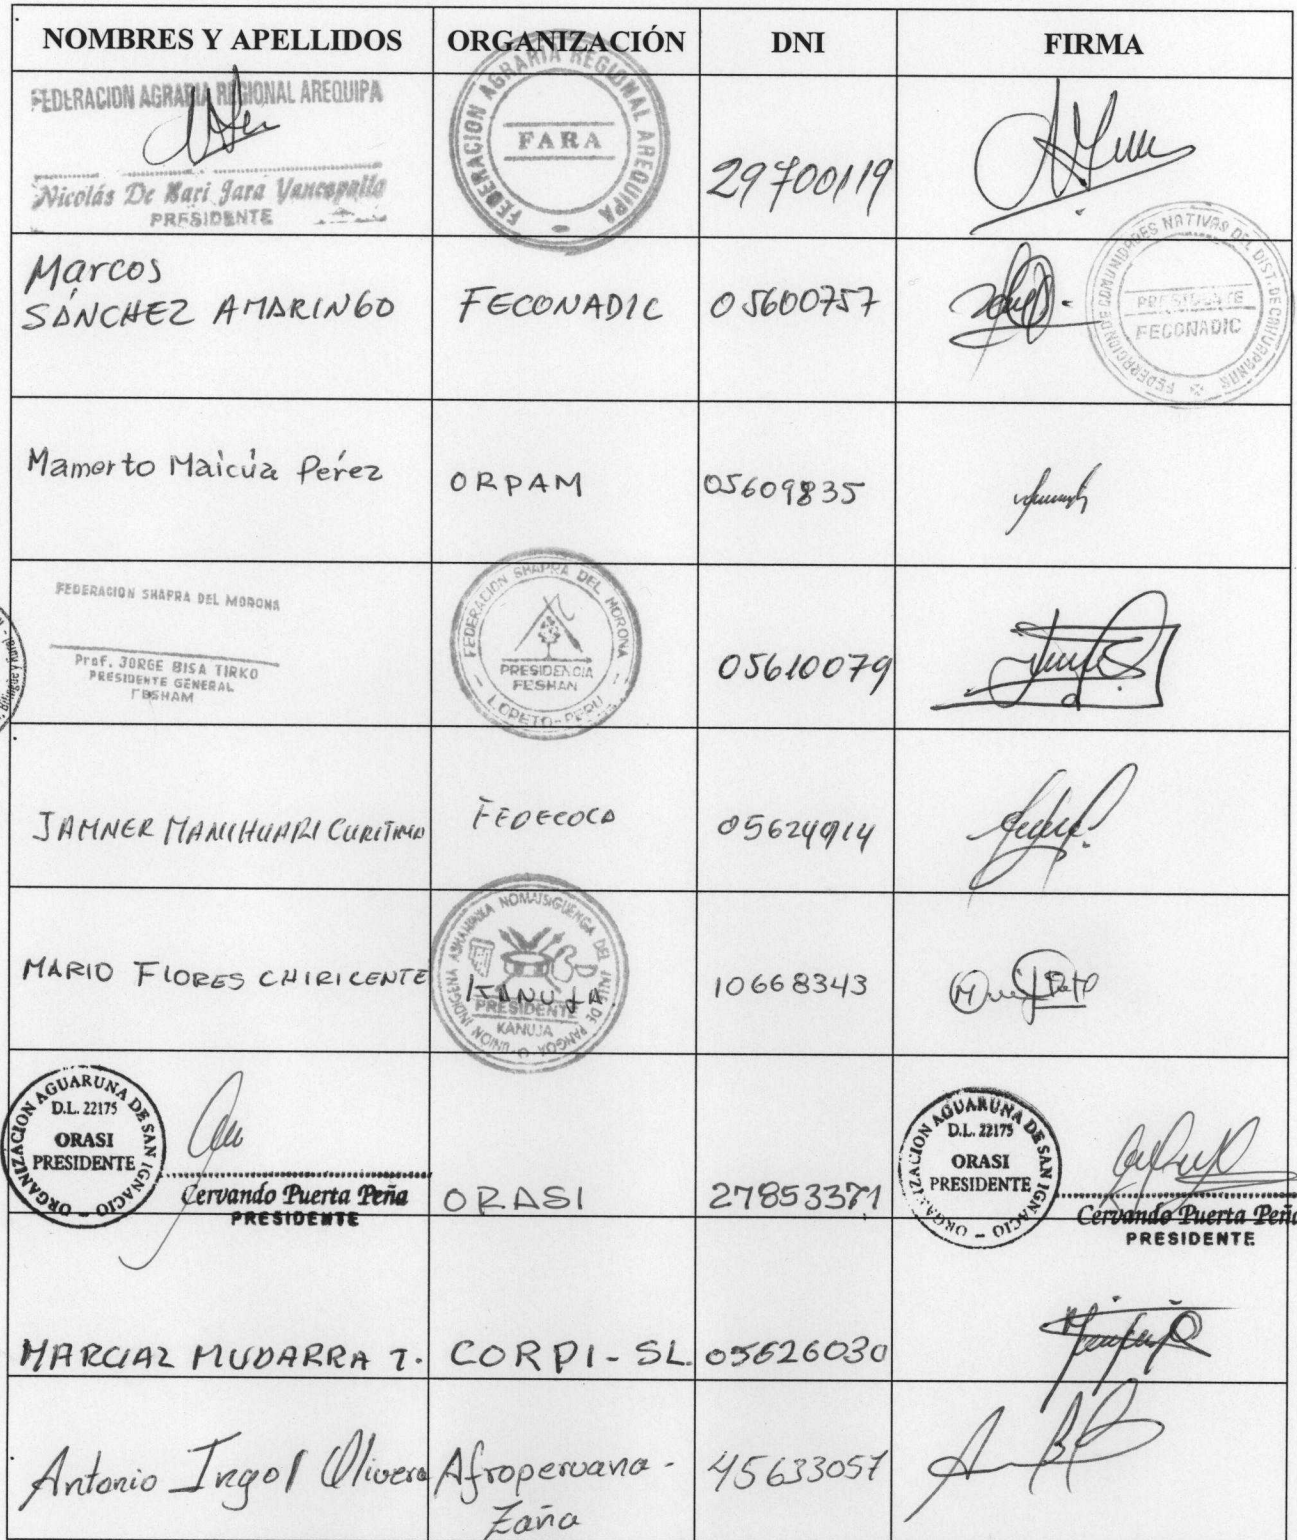 NOMBRES Y APELLIDOS ORGANIZACIÓN DNI FIRMA
FEDERACION AGRARIA REGIONAL AREQUIPA
Nicolás De Bari Jara
PRESIDENTE
FEDERACION AGRARIA REGIONAL AREQUIPA
FARA
29700119
Marcos
SÁNCHEZ AMARINGO FECONADIC 05600757
FEDERACION DE COMUNIDADES NATIVAS DEL DIST. DE CAHUAPANAS
PRESIDENTE
FECONADIC
Mamerto Maicúa Pérez ORPAM 05609835
FEDERACION SHAPRA DEL MORONA
Prof. JORGE BISA TIRKO
PRESIDENTE GENERAL
FESHAM
FEDERACION SHAPRA DEL MORONA
PRESIDENCIA
FESHAM
LORETO-PERU
05610079
JAMNER MANIHUARI CURITIMA FEDECOCA 05624914
MARIO FLORES CHIRICENTE KANUJA. 10668343
UNION INDIGENA ASHANINKA NOMATSIGUENGA DEL VALLE DE PANGOA
PRESIDENTE
KANUJA
ORGANIZACION AGUARUNA DE SAN IGNACIO
D.L. 22175
ORASI
PRESIDENTE
Cervando Puerta Peña
PRESIDENTE
ORASI 27853371
ORGANIZACION AGUARUNA DE SAN IGNACIO
D.L. 22175
ORASI
PRESIDENTE
Cervando Puerta Peña
PRESIDENTE
MARCIAL MUDARRA T. CORPI-SL 05626030
Antonio Ingol Olivera Afroperuana - 45633057
Zaña